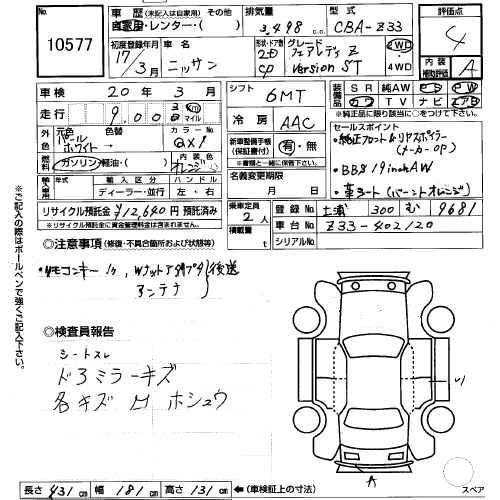 No.
10577
車歴 (未記入は自家用) その他
自家用・レンター・( )
排気量
3,498 cc
型式
CBA-Z33
評価点
4
初度登録年月
17/3月
車名
ニッサン
形状・ドア数
2D
CP
グレード
フェアレディZ
Version ST
2WD
4WD
内装
補助評価
A
車検
20年 3月
シフト
6MT
装備品
SR 純AW PS PW
カワ TV ナビ エアB
※純正品に限り該当に○をつけて下さい。
走行
9,000
km
マイル
冷房
AAC
セールスポイント
・純正フロント&リアスポイラー
(メーカーOP)
・BBS 19inch AW
・革シート(バーントオレンジ)
外色
元色
パールホワイト→
色替
カラーNo.
QX1
内装色
オレンジ
燃料
ガソリン・軽油・( )
新車整備手帳
(保証書)
有・無
※書類と一緒に保管下さい。
輸入車
年式
輸入区分
ディーラー・並行
ハンドル
左・右
名義変更期限
月 日
リサイクル預託金 ¥12,640円 預託済み
※リサイクル預託金に資金管理料金は含まれません。
乗車定員
2人
積載量
t
登録No.
土浦 300 む 9681
車台No.
Z33-402120
シリアルNo.
◎注意事項 (修復・不具合箇所および状態等)
・リモコンキー1ヶ, Wナットアダプタ
アンテナ
後送
※ご記入の際はボールペンで強くご記入下さい。
◎検査員報告
シートスレ
ドアミラーキズ
各キズ凹 ホシュウ
U1
A
スペア
長さ 431 cm 幅 181 cm 高さ 131 cm (車検証上の寸法)